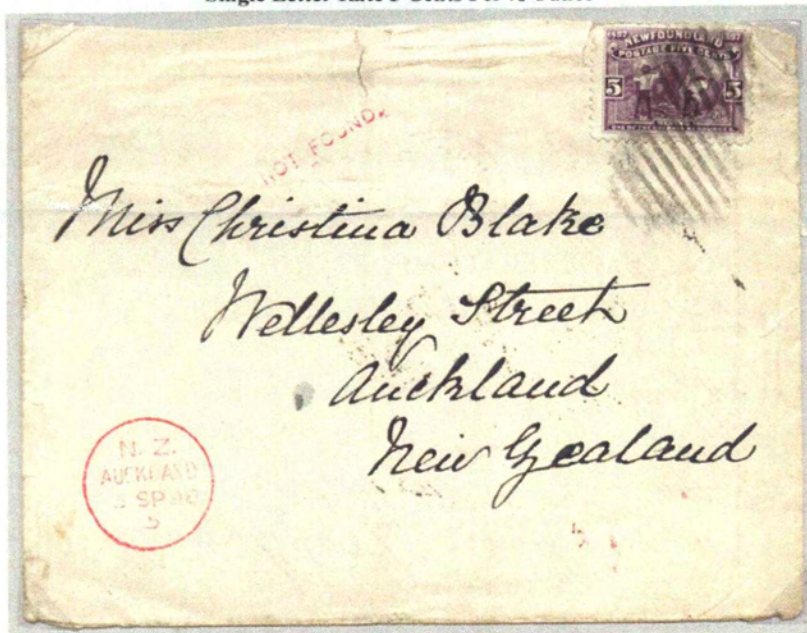 1497 1897
NEWFOUNDLAND
POSTAGE FIVE CENTS
5 5
NOT FOUND.
Miss Christina Blake
Wellesley Street
Auckland
New Zealand
N. Z.
AUCKLAND
SP